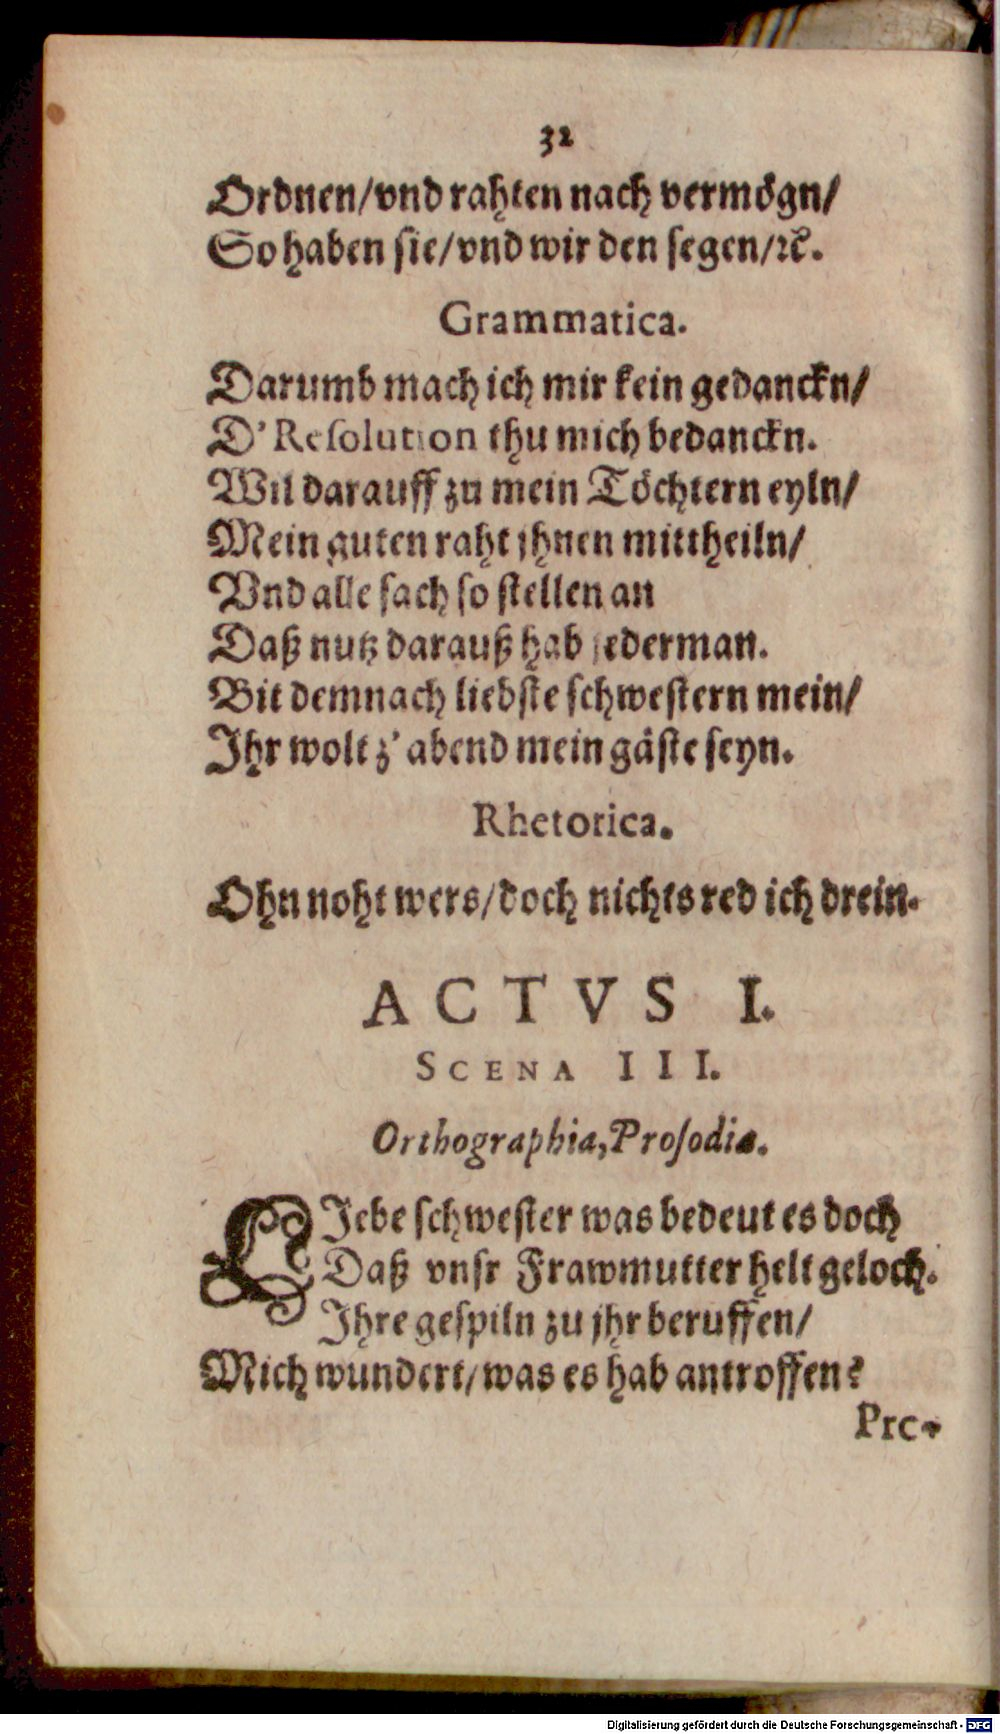 32
Ordnen/vnd rahten nach vermögn/
So haben sie/vnd wir den segen/ꝛc.
Grammatica.
Darumb mach ich mir kein gedanckn/
D'Reſolution thu mich bedanckn.
Wil darauff zu mein Töchtern eyln/
Mein guten raht jhnen mittheiln/
Vnd alle ſach ſo ſtellen an
Daß nutz darauß hab jederman.
Bit demnach liebſte ſchweſtern mein/
Ihr wolt z' abend mein gäſte ſeyn.
Rhetorica.
Ohn noht wers/doch nichts red ich drein.
ACTVS I.
SCENA III.
Orthographia, Proſodia.
LIebe ſchweſter was bedeut es doch
Daß vnſr Frawmutter helt geloch.
Ihre geſpiln zu jhr beruffen/
Mich wundert/was es hab antroffen?
Pro-
Digitalisierung gefördert durch die Deutsche Forschungsgemeinschaft - DFG